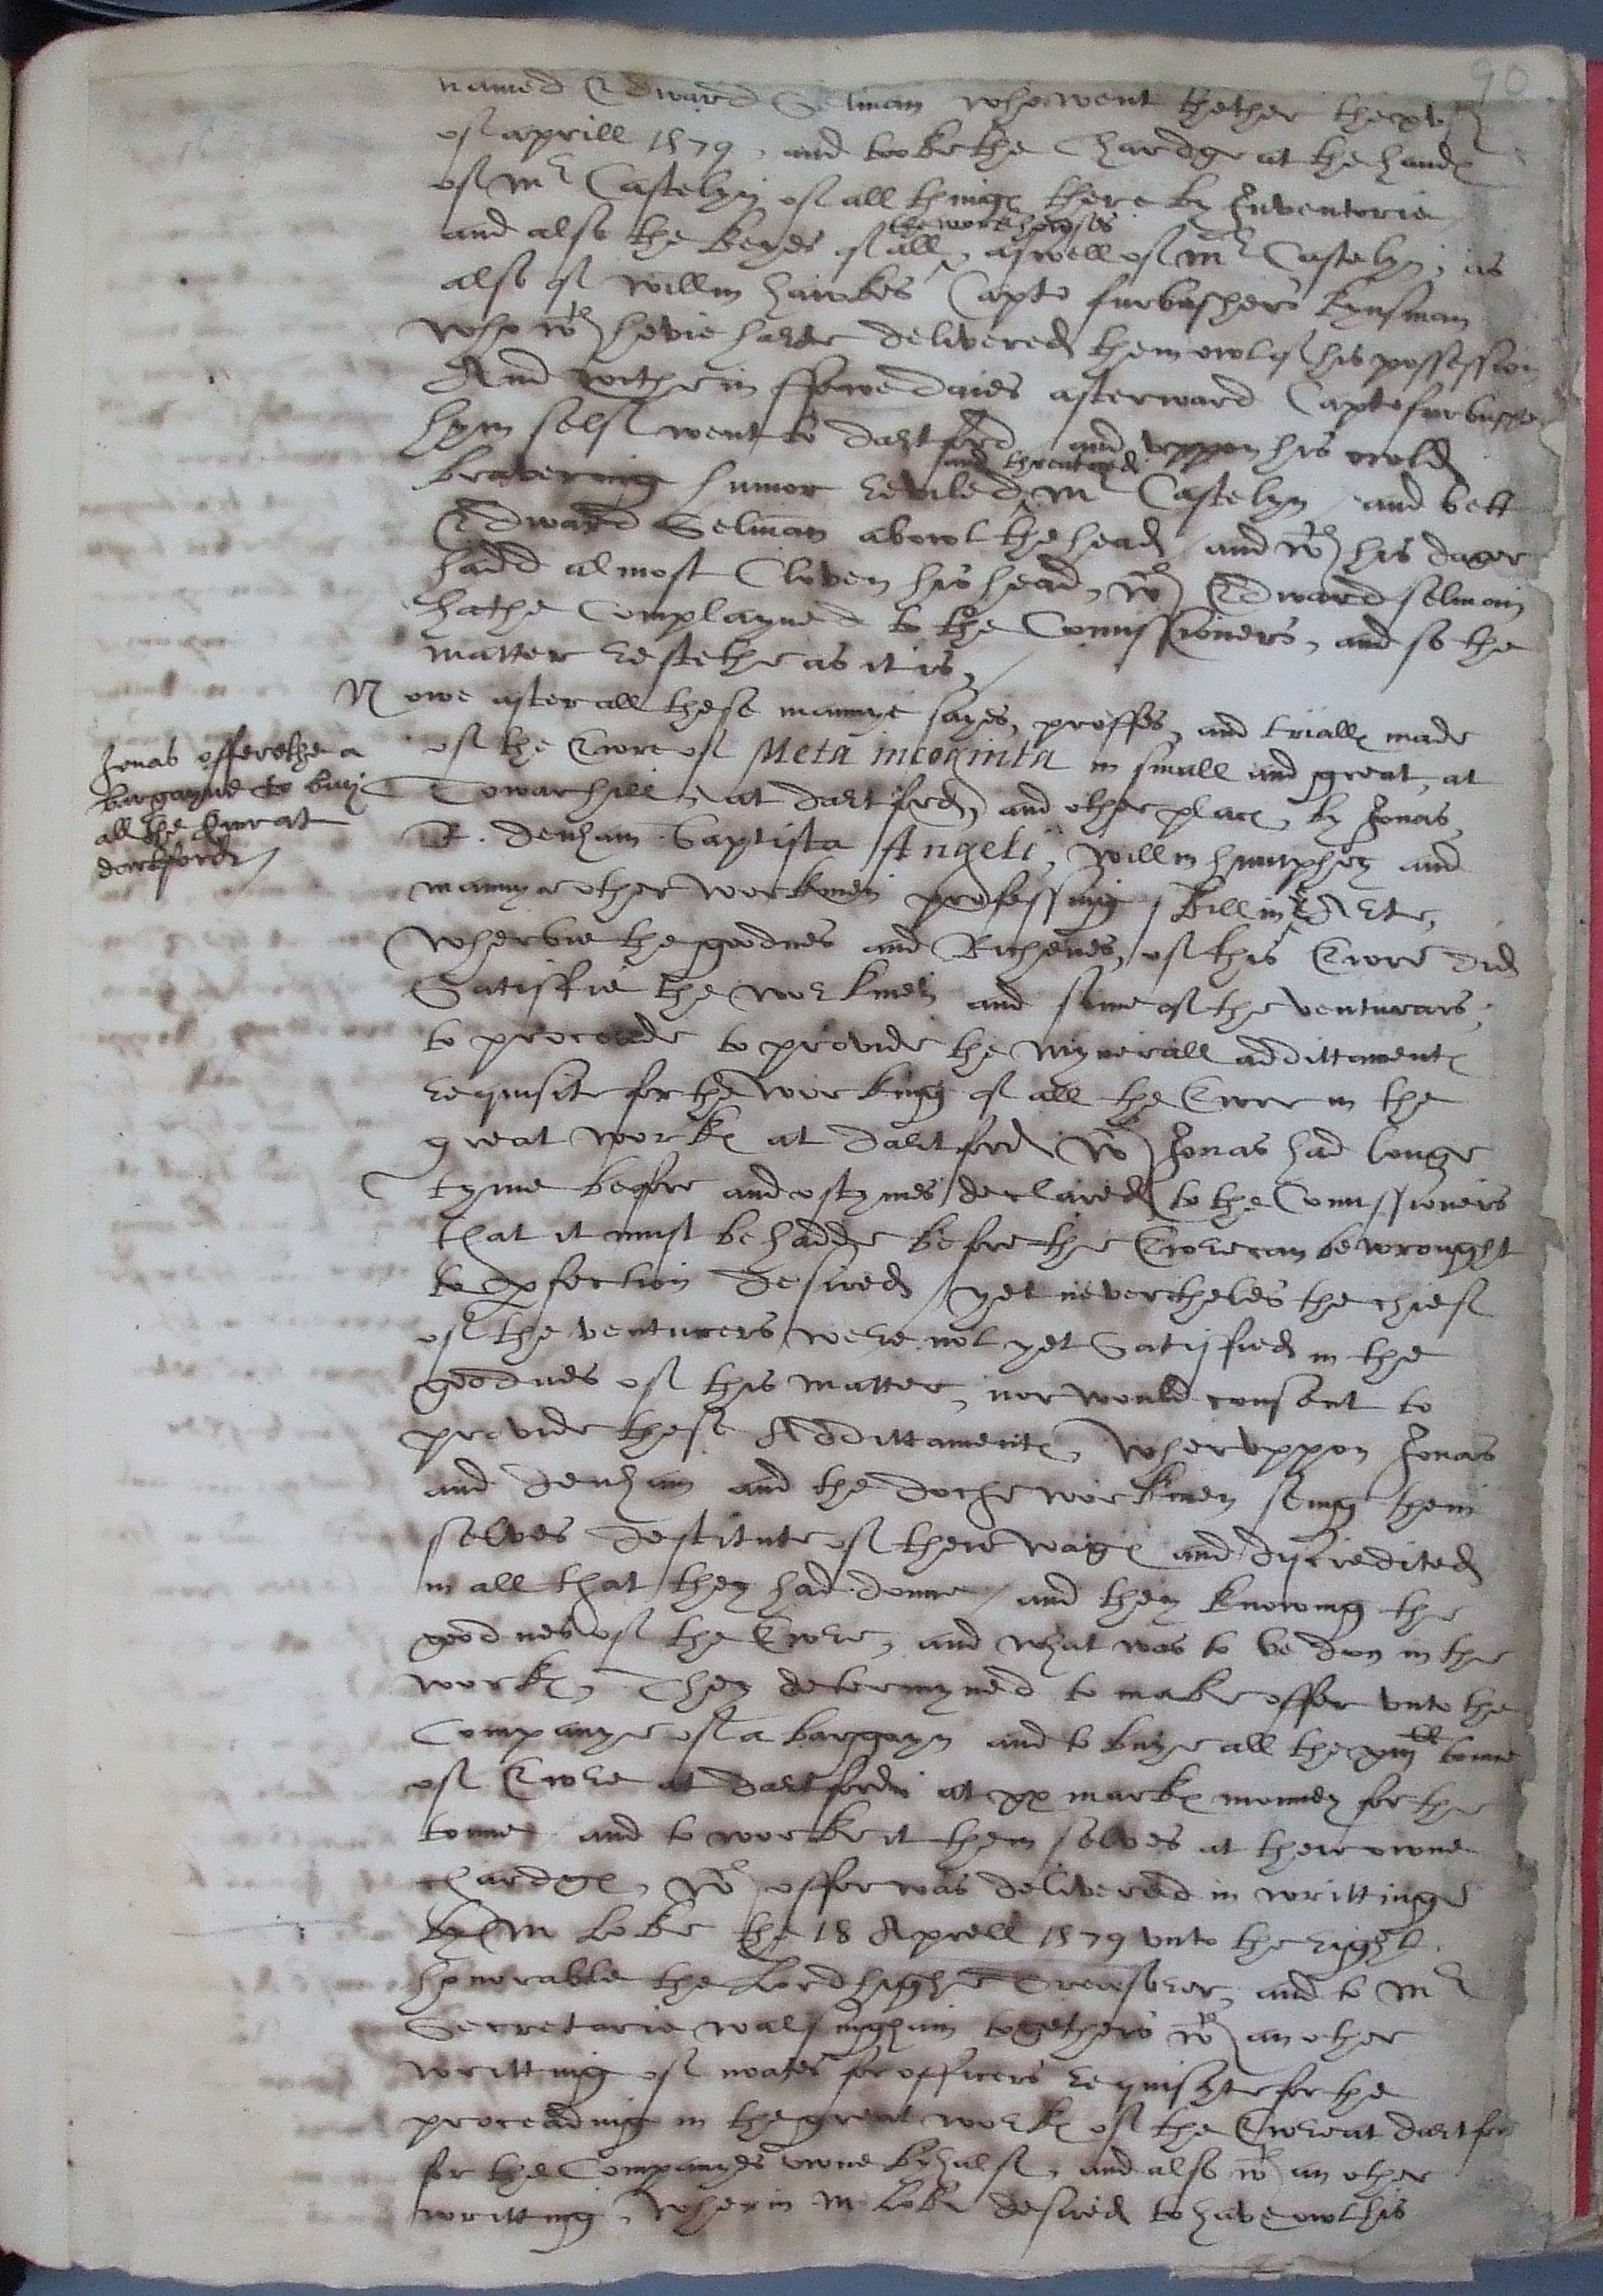 90
named Edward Selman who went thether the xvth
of aprill 1579, and tooke the Chardge at the handes
of Mr Castelyn of all thinges there by Inventorie
and also the keyes of all ^the workhowses, aswell of Mr Castelyn, as
also of Willm hawkes Capto furbushers kynsman
who wth hevie harte delivered them owt of his possession
And within ffewe daies afterward Capto furbusher
hym self went to dartford, and uppon his owld
bravering humor reviled ^and thretned Mr Castelyn, and bett
Edward Selman abowt the head, and wth his dager
hadd almost Cloven his head, wch Edward Selman
hathe Complayned to the Comissioners, and so the
matter restethe as it is,
Nowe after all these mannye sayes, proffes, and trialls made
Jonas offerethe a
bargayne to buy
all the Ewre at
dartford
of the Ewre of Meta incognita in small and great, at
Towarhill, at dartford, and other places, by Jonas,
R. denham Baptista Angeli, Willm humphrey and
mannye other workmen professing skill in yt Arte,
Wherbie the goodnes and Richenes, of this Ewre did
Satisfie the workmen and some of the venturars,
to proceede to provide the mynerall addittamentes
requisite for the working of all the Ewre in the
great workes at dartford wch Jonas had longe
tyme before and oftymes declared to the Comissioners
that it must be hadde before the Ewre can be wrought
to pfection desired, yet nevertheles the chief
of the venturers were not yet Satisfied in the
goodnes of this matter, nor would consent to
provide these Addittamentes, Wheruppon Jonas
and denham and the doche workmen seing them
selves destitute of there wages and discredited
in all that they had donne, and they knowing the
goodnes of the Ewre, and what was to be don in the
workes, They determyned to make offer unto the
Companye of a bargayn and to buye all the tonne
of Ewre at dartford at xx markes monney for the
tonne and to worke it them selves at there owne
chardges, wch offer was delivered in writtinge
by M Loke the 18 Aprell 1579 unto the right
honorable the Lord highe Treasorer, and to Mr
Secretarie Walsingham togethers wth an other
writting of noates for officers requisyte for the
proceading in the great workes of the Ewre at dartford
for the Companyes owne byhalf, and also wth an other
writting, Wherin M Loke desired to have owt his